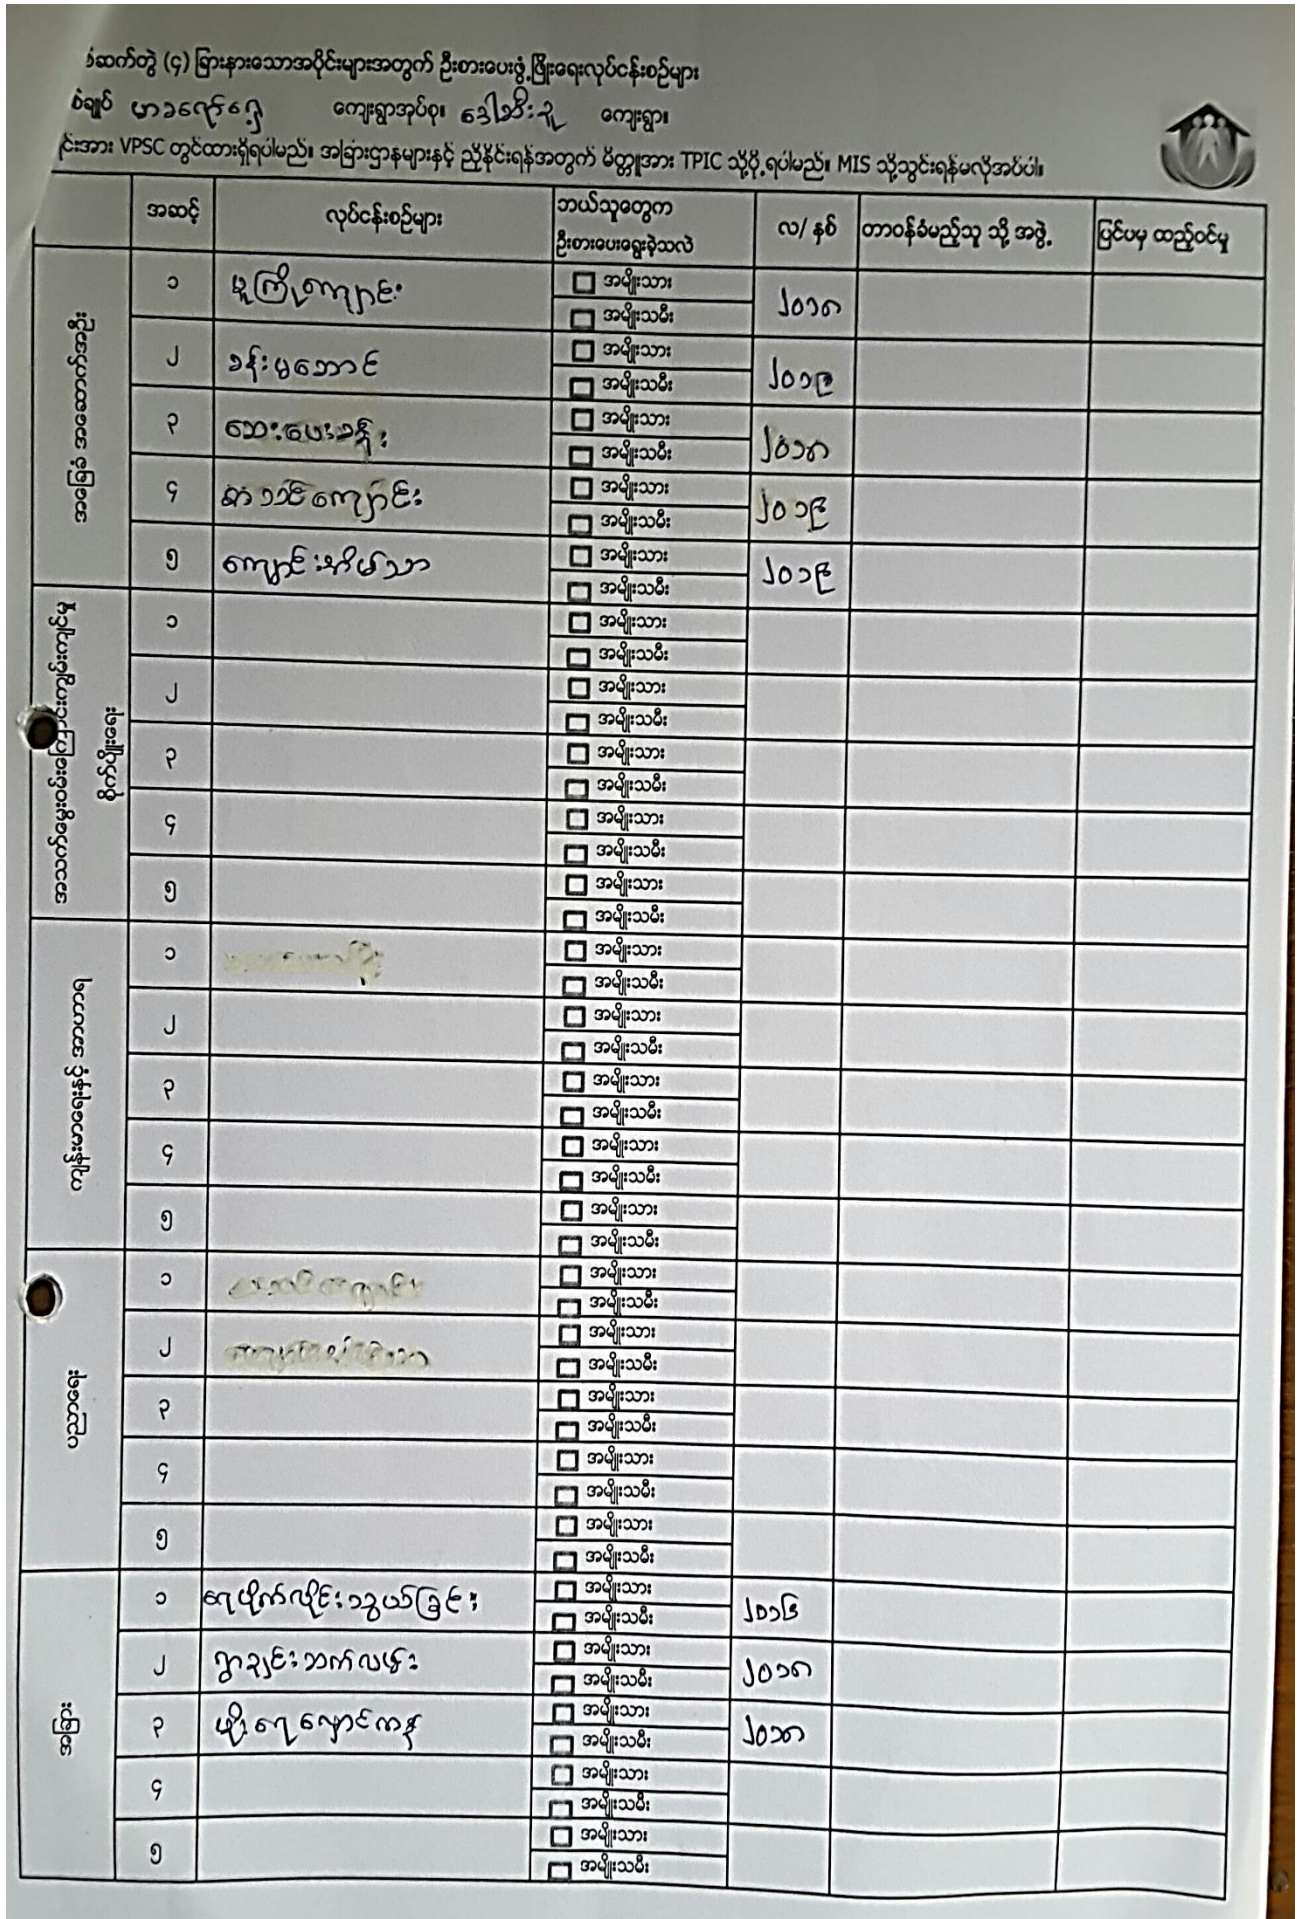 ံဆက်တွဲ (၄) ခြားနားသောအပိုင်းများအတွက် ဦးစားပေးဖွံ့ဖြိုးရေးလုပ်ငန်းစဉ်များ
ကျေးရွာအုပ်စု၊ ဒေါ်ဘီးဒူ ကျေးရွာ။
အား VPSC တွင်ထားရှိရပါမည်။ အခြားဌာနများနှင့် ညှိနှိုင်းရန်အတွက် မိတ္တူအား TPIC သို့ပို့ရပါမည်။ MIS သို့သွင်းရန်မလိုအပ်ပါ။
အဆင့် လုပ်ငန်းစဉ်များ ဘယ်သူတွေက ဦးစားပေးရွေးခဲ့သလဲ လ/ နှစ် တာဝန်ခံမည့်သူ သို့ အဖွဲ့ ပြင်ပမှ ထည့်ဝင်မှု
၁ မူကြိုကျောင်း အမျိုးသား ၂၀၁၈
အမျိုးသမီး
၂ ခန်းမဆောင် အမျိုးသား ၂၀၁၉
အမျိုးသမီး
၃ ဆေးပေးခန်း အမျိုးသား ၂၀၁၈
အမျိုးသမီး
၄ စာသင်ကျောင်း အမျိုးသား ၂၀၁၉
အမျိုးသမီး
၅ ကျောင်းအိမ်သာ အမျိုးသား ၂၀၁၉
အမျိုးသမီး
၁ အမျိုးသား
အမျိုးသမီး
၂ အမျိုးသား
အမျိုးသမီး
၃ အမျိုးသား
အမျိုးသမီး
၄ အမျိုးသား
အမျိုးသမီး
၅ အမျိုးသား
အမျိုးသမီး
၁ အမျိုးသား
အမျိုးသမီး
၂ အမျိုးသား
အမျိုးသမီး
၃ အမျိုးသား
အမျိုးသမီး
၄ အမျိုးသား
အမျိုးသမီး
၅ အမျိုးသား
အမျိုးသမီး
ပညာရေး
၁ အမျိုးသား
အမျိုးသမီး
၂ အမျိုးသား
အမျိုးသမီး
၃ အမျိုးသား
အမျိုးသမီး
၄ အမျိုးသား
အမျိုးသမီး
၅ အမျိုးသား
အမျိုးသမီး
အခြား
၁ ရေပိုက်လိုင်းသွယ်ခြင်း အမျိုးသား ၂၀၁၆
အမျိုးသမီး
၂ ရွာချင်းဆက်လမ်း အမျိုးသား ၂၀၁၈
အမျိုးသမီး
၃ မိုးရေလှောင်ကန် အမျိုးသား ၂၀၁၈
အမျိုးသမီး
၄ အမျိုးသား
အမျိုးသမီး
၅ အမျိုးသား
အမျိုးသမီး